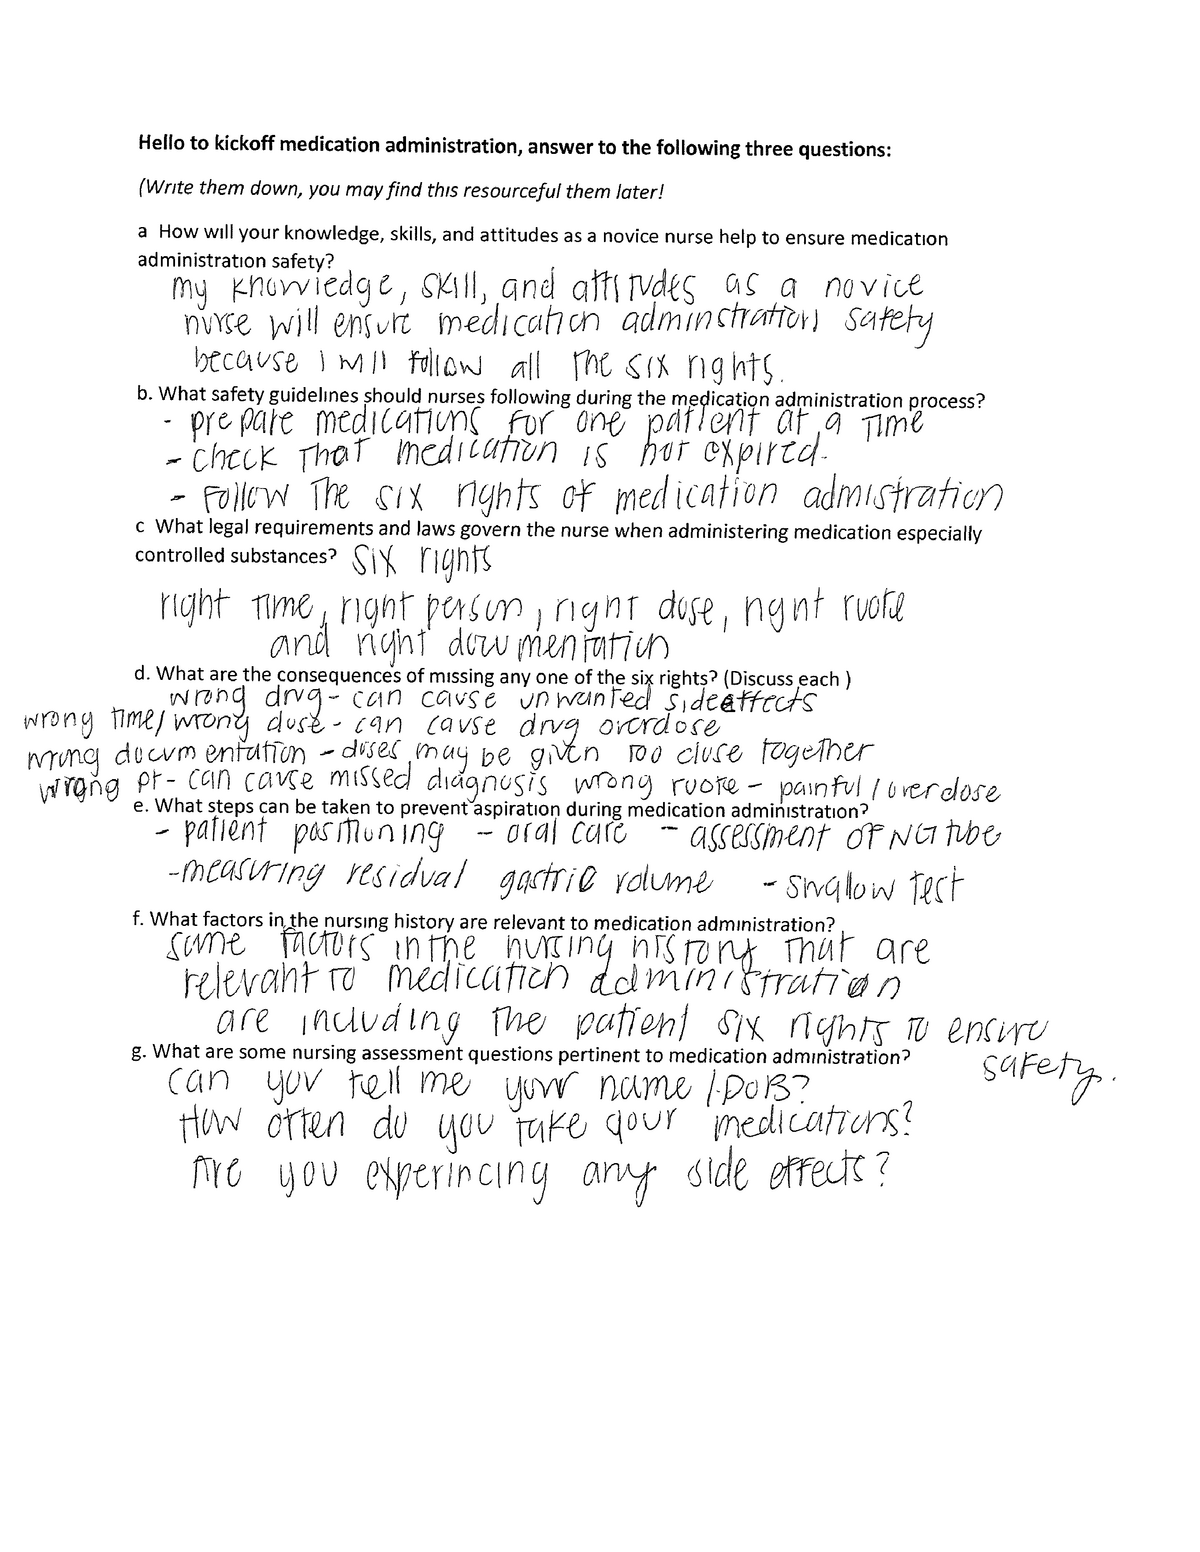 Hello to kickoff medication administration, answer to the following three questions:
(Write them down, you may find this resourceful them later!
a How will your knowledge, skills, and attitudes as a novice nurse help to ensure medication
administration safety?
my knowledge, skill, and attitudes as a novice
nurse will ensure medication adminstration safety
because I will follow all the six rights.
b. What safety guidelines should nurses following during the medication administration process?
- prepare medications for one patient at a time
- check that medication is not expired.
- Follow the six rights of medication admistration
c What legal requirements and laws govern the nurse when administering medication especially
controlled substances? six rights
right time, right person, right dose, right ruote
and right documentation
d. What are the consequences of missing any one of the six rights? (Discuss each )
wrong drug - can cause unwanted sideeffects
wrong time/wrong dose - can cause drug overdose
wrong documentation - doses may be given too close together
wrong pt - can cause missed diagnosis wrong ruote - painful/overdose
e. What steps can be taken to prevent aspiration during medication administration?
- patient positioning - oral care - assessment of NG tube
- measuring residual gastric volume - swallow test
f. What factors in the nursing history are relevant to medication administration?
some factors in the nursing history that are
relevant to medication administration
are including the patient six rights to ensure
safety.
g. What are some nursing assessment questions pertinent to medication administration?
can you tell me your name /DOB?
How often do you take your medications?
Are you experincing any side effects?